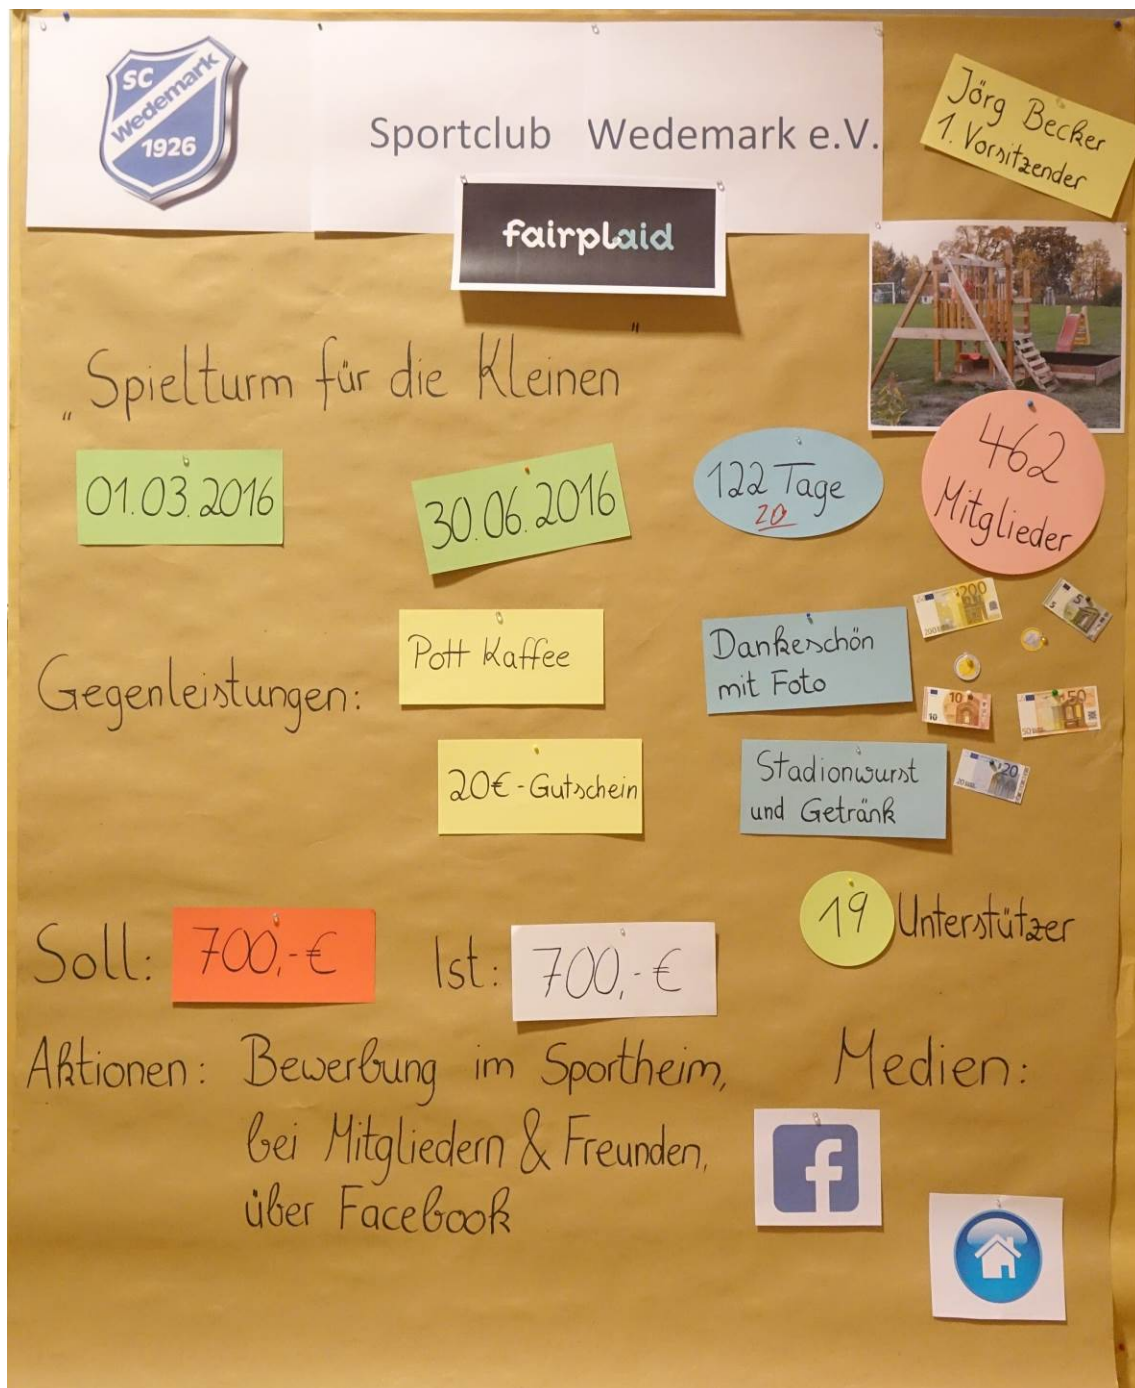 SC
Wedemark
1926
Sportclub Wedemark e.V.
Jörg Becker
1. Vorsitzender
fairplaid
„Spielturm für die Kleinen"
01.03.2016
30.06.2016
122 Tage
20
462
Mitglieder
Gegenleistungen:
Pott Kaffee
Dankeschön
mit Foto
200
5
10
10
50
20
20€-Gutschein
Stadionwurst
und Getränk
19 Unterstützer
Soll: 700,-€
Ist: 700,-€
Aktionen: Bewerbung im Sportheim,
bei Mitgliedern & Freunden,
über Facebook
Medien:
f